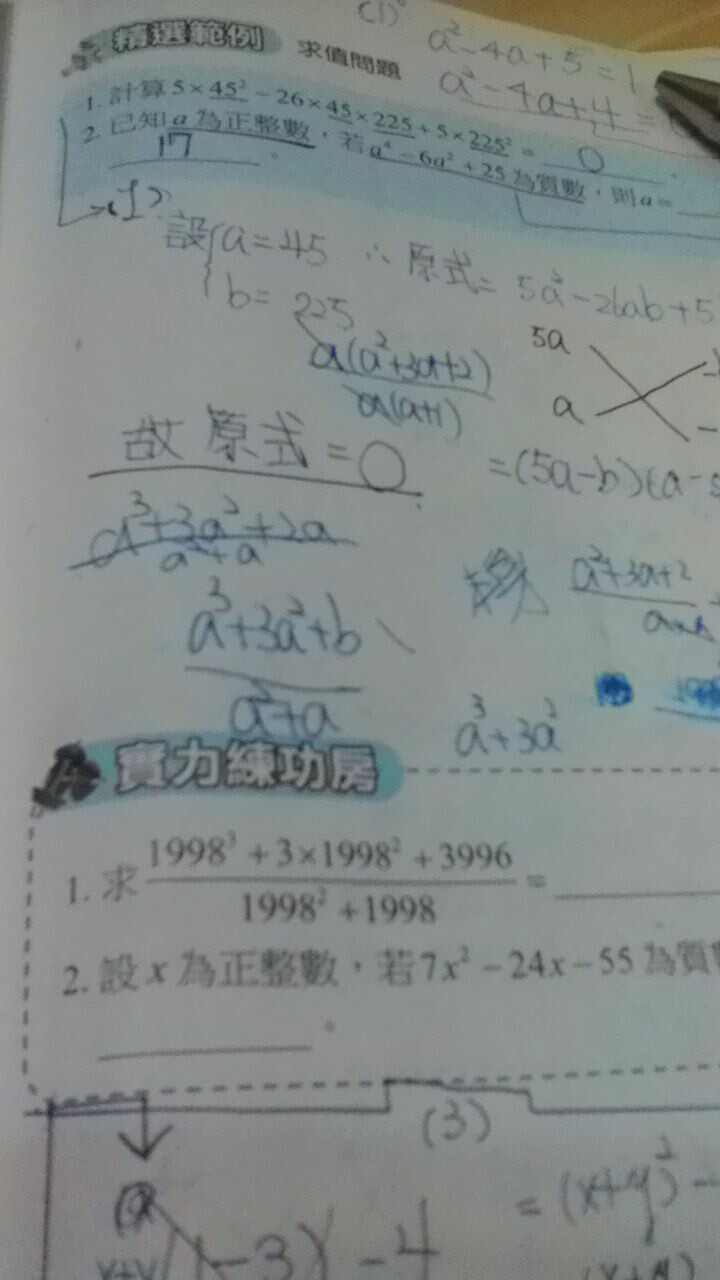 (1)
a²-4a+5=1
精選範例 求值問題
a²-4a+4=
1. 計算 5×45²-26×45×225+5×225²= 0 。
2. 已知 a 為正整數,若 a⁴-6a²+25 為質數,則 a=
17 。
設{a=45 ∴原式=5a²-26ab+5
b=225
a(a²+3a+2)
a(a+1)
5a
a
故原式=0
=(5a-b)(a-5
a³+3a²+2a
a²+a
a²+3a+2
a³+3a²+b
a²+a
a³+3a²
實力練功房
1. 求 1998³+3×1998²+3996 =
1998²+1998
2. 設 x 為正整數,若 7x²-24x-55 為質
。
(3)
=(x+y)²-
-3)-4